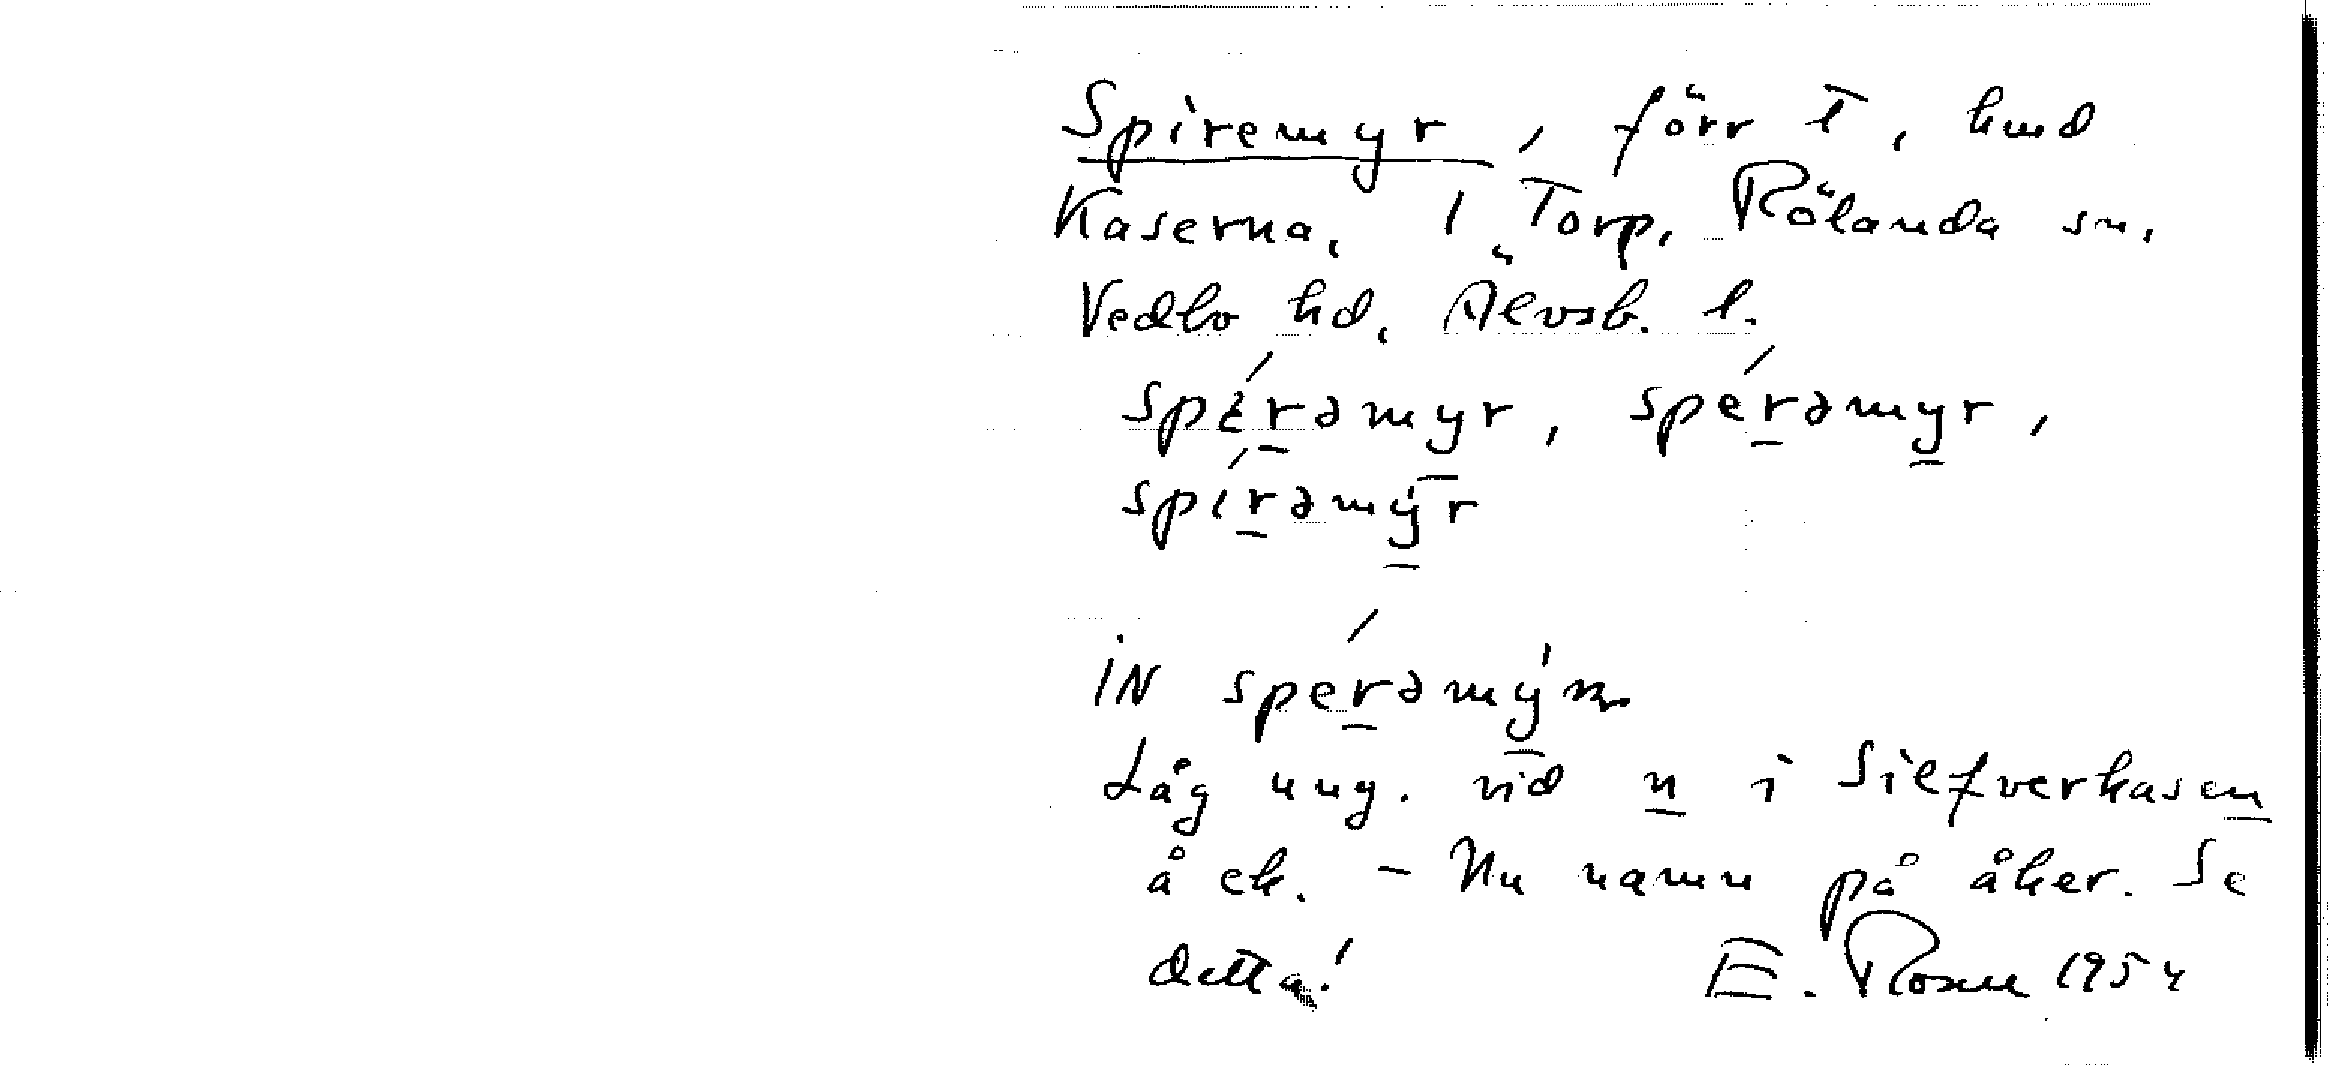 Spiremyr, förr t, hmd
Kaserna, 1 Torp, Rölanda sn,
Vedbo hd, Älvsb. l.
spérəmyr, spérəmyr,
spírəmȳr
iN spérəmýr
Låg ung. vid n i Silfverkasen
å ek. - Nu namn på åker. Se
detta! E. Rosen 1954